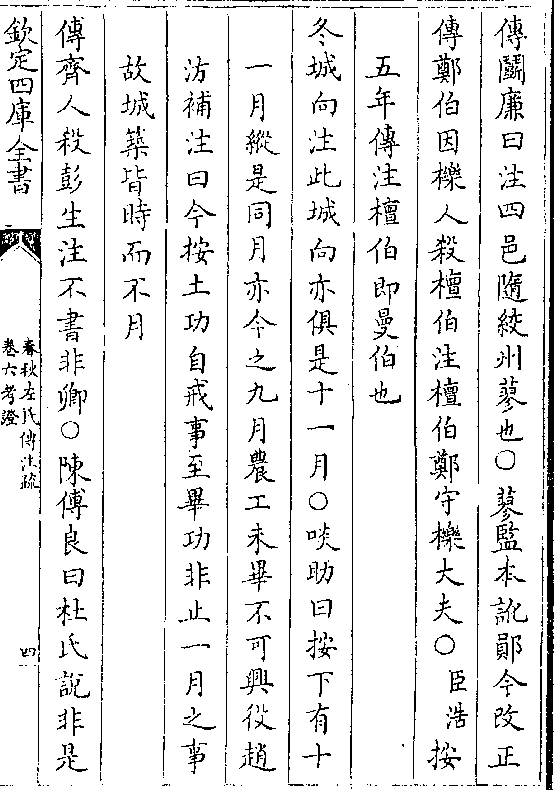 傳鬭廉曰注四邑隨絞州蓼也○蓼監本訛鄖今改正
傳鄭伯因櫟人殺檀伯注檀伯鄭守櫟大夫○臣浩按
五年傳注檀伯即曼伯也
冬城向注此城向亦俱是十一月○啖助曰按下有十
一月縱是同月亦今之九月農工未畢不可興役趙
汸補注曰今按土功自戒事至畢功非止一月之事
故城築皆時而不月
傳齊人殺彭生注不書非卿○陳傅良曰杜氏說非是
欽定四庫全書
春秋左氏傳注疏
卷六考證
四